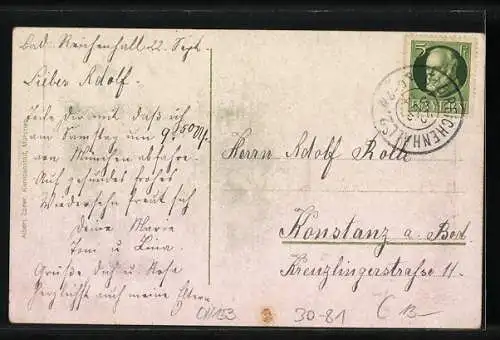 Bad Reichenhall 22. Sept.
Lieber Adolf.
Teile Dir mit daß ich
am Samstag um 9.50 Uhr
von München abfahre.
Auf gesundes frohes
Wiedersehn freut sich
Deine Marie
Toni u Lina
Grüße Dich u Rosa
herzlichst auch meine Eltern
Albert Ebner, Kunstanstalt, München
5
BAYERN
REICHENHALL
Herrn Adolf
Konstanz a. Bod
Kreuzlingerstraße 11.
30-81